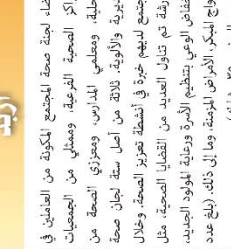 لجنة صحة المجتمع المكونة من العاملين في
المراكز الصحية الفرعية وممثلي من الجمعيات
المحلية، ومعلمي المدارس ومعززي الصحة من
المديرية والألوية. ثلاثة من أصل ستة لجان صحة
مجتمع لديهم خبرة في أنشطة تعزيز الصحة، وخلال
تم تناول العديد من القضايا الصحية، مثل
الوعي بتنظيم الأسرة ورعاية المولود الجديد،
المبكر، الأمراض المزمنة، وما إلى ذلك. (بلغ عدد